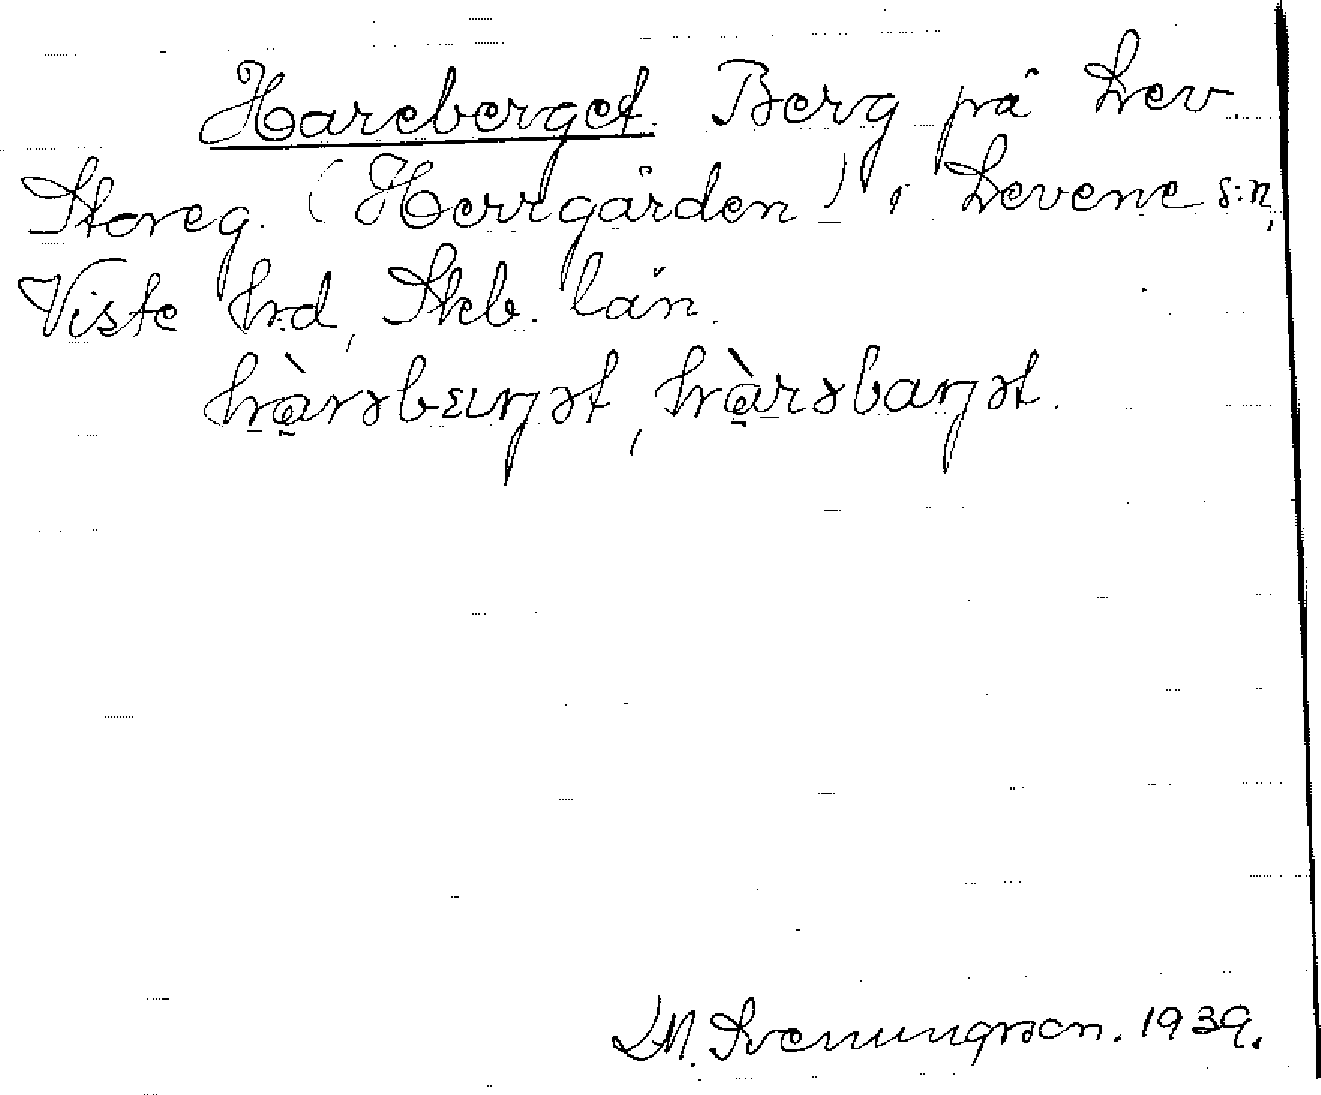 Hareberget. Berg på Lev
Storeg. (Herrgården) i Levene s:n,
Viste hrd, Skb. län.
hàrəbærjət, hàrəbarjət.
D.M. Svenungsson. 1939.